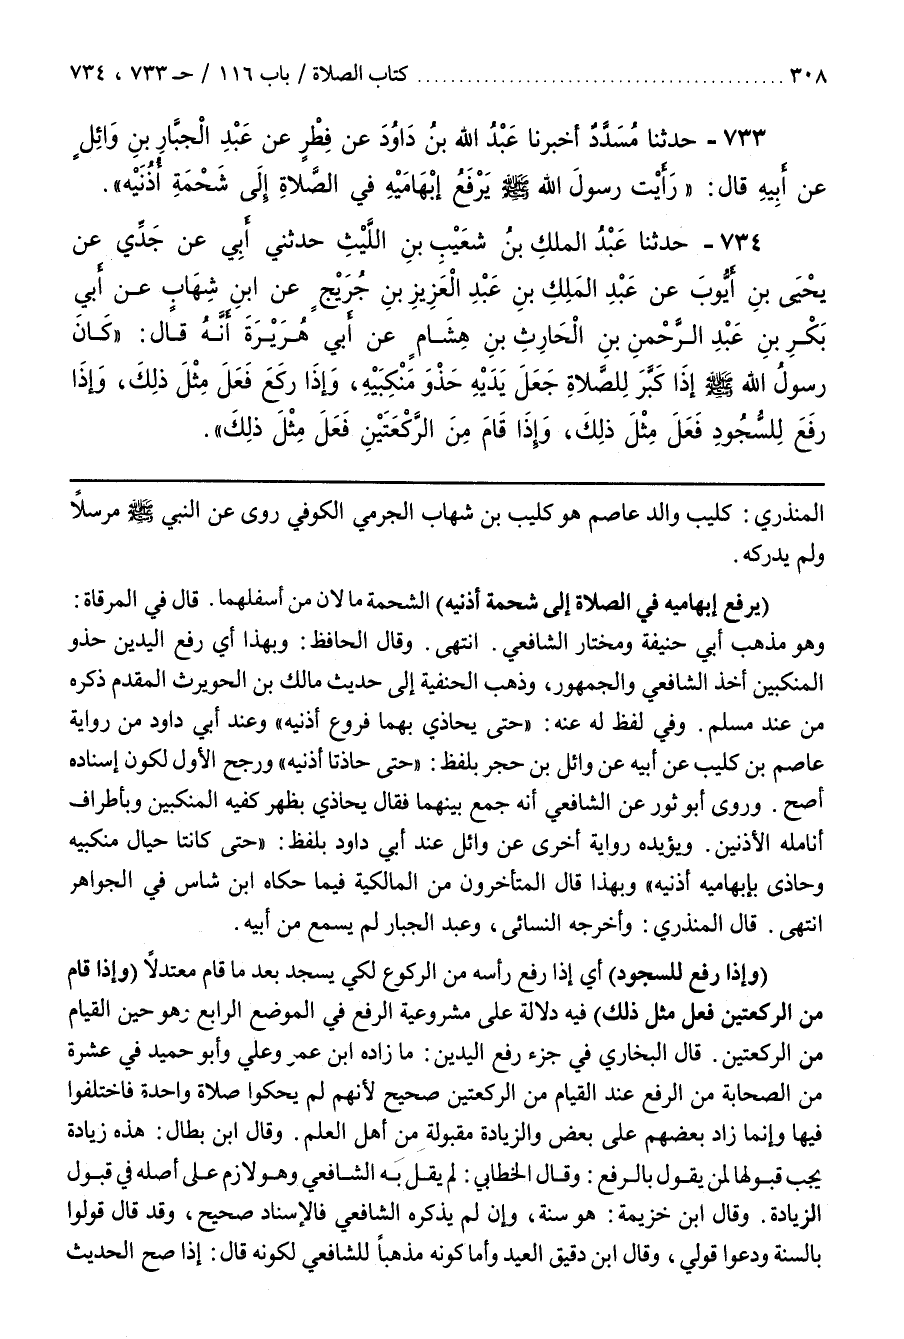 ٣٠٨ ........................ كتاب الصلاة / باب ١١٦ / حـ ٧٣٣ ، ٧٣٤
٧٣٣ - حدثنا مُسَدَّدٌ أخبرنا عَبْدُ الله بنُ دَاوُدَ عن فِطْرٍ عن عَبْدِ الْجبَّارِ بنِ وَائِلٍ
عن أَبِيهِ قال: « رَأَيْت رسولَ الله ﷺ يَرْفَعُ إبْهامَيْهِ في الصَّلاةِ إلَى شَحْمَةِ أُذُنَيْه».
٧٣٤ - حدثنا عَبْدُ الملكِ بنُ شعَيْبِ بنِ اللَّيْثِ حدثني أَبي عن جَدِّي عن
يحْيَى بنِ أَيُّوبَ عن عَبْدِ المَلِكِ بنِ عَبْدِ الْعَزِيزِ بنِ جُرَيْجٍ عن ابنِ شِهَابٍ عـن أبي
بَكْـرِ بنِ عَبْدِ الـرَّحْمنِ بنِ الْحَارِثِ بنِ هِشَـامٍ عن أبي هُـرَيْـرَةَ أَنَّـهُ قـال: «كَـانَ
رسولُ الله ﷺ إذَا كَبَّرَ لِلصَّلاةِ جَعَلَ يَدَيْهِ حَذْوَ مَنْكِبَيْهِ، وَإذَا ركَعَ فَعَلَ مِثْلَ ذلِكَ، وَإذَا
رفَعَ لِلسُّجُودِ فَعَلَ مِثْلَ ذلِكَ، وَإِذَا قَامَ مِنَ الرَّكْعَتَيْنِ فَعَلَ مِثْلَ ذلِكَ».
المنذري: كليب والد عاصم هو كليب بن شهاب الجرمي الكوفي روى عن النبي ﷺ مرسلاً
ولم يدركه.
(يرفع إبهاميه في الصلاة إلى شحمة أذنيه) الشحمة ما لان من أسفلهما. قال في المرقاة:
وهو مذهب أبي حنيفة ومختار الشافعي. انتهى. وقال الحافظ: وبهذا أي رفع اليدين حذو
المنكبين أخذ الشافعي والجمهور، وذهب الحنفية إلى حديث مالك بن الحويرث المقدم ذكره
من عند مسلم. وفي لفظ له عنه: «حتى يحاذي بهما فروع أذنيه» وعند أبي داود من رواية
عاصم بن كليب عن أبيه عن وائل بن حجر بلفظ: «حتى حاذتا أذنيه» ورجح الأول لكون إسناده
أصح. وروى أبو ثور عن الشافعي أنه جمع بينهما فقال يحاذي بظهر كفيه المنكبين وبأطراف
أنامله الأذنين. ويؤيده رواية أخرى عن وائل عند أبي داود بلفظ: «حتى كانتا حيال منكبيه
وحاذى بإبهاميه أذنيه» وبهذا قال المتأخرون من المالكية فيما حكاه ابن شاس في الجواهر
انتهى. قال المنذري: وأخرجه النسائى، وعبد الجبار لم يسمع من أبيه.
(وإذا رفع للسجود) أي إذا رفع رأسه من الركوع لكي يسجد بعد ما قام معتدلاً (وإذا قام
من الركعتين فعل مثل ذلك) فيه دلالة على مشروعية الرفع في الموضع الرابع وهو حين القيام
من الركعتين. قال البخاري في جزء رفع اليدين: ما زاده ابن عمر وعلي وأبو حميد في عشرة
من الصحابة من الرفع عند القيام من الركعتين صحيح لأنهم لم يحكوا صلاة واحدة فاختلفوا
فيها وإنما زاد بعضهم على بعض والزيادة مقبولة من أهل العلم. وقال ابن بطال: هذه زيادة
يجب قبـولها لمن يقـول بالـرفع: وقـال الخطابي: لم يقـل بـه الشـافعي وهـو لازم عـلى أصله في قبـول
الزيادة. وقال ابن خزيمة: هو سنة، وإن لم يذكره الشافعي فالإسناد صحيح، وقد قال قولوا
بالسنة ودعوا قولي، وقال ابن دقيق العيد وأما كونه مذهباً للشافعي لكونه قال: إذا صح الحديث